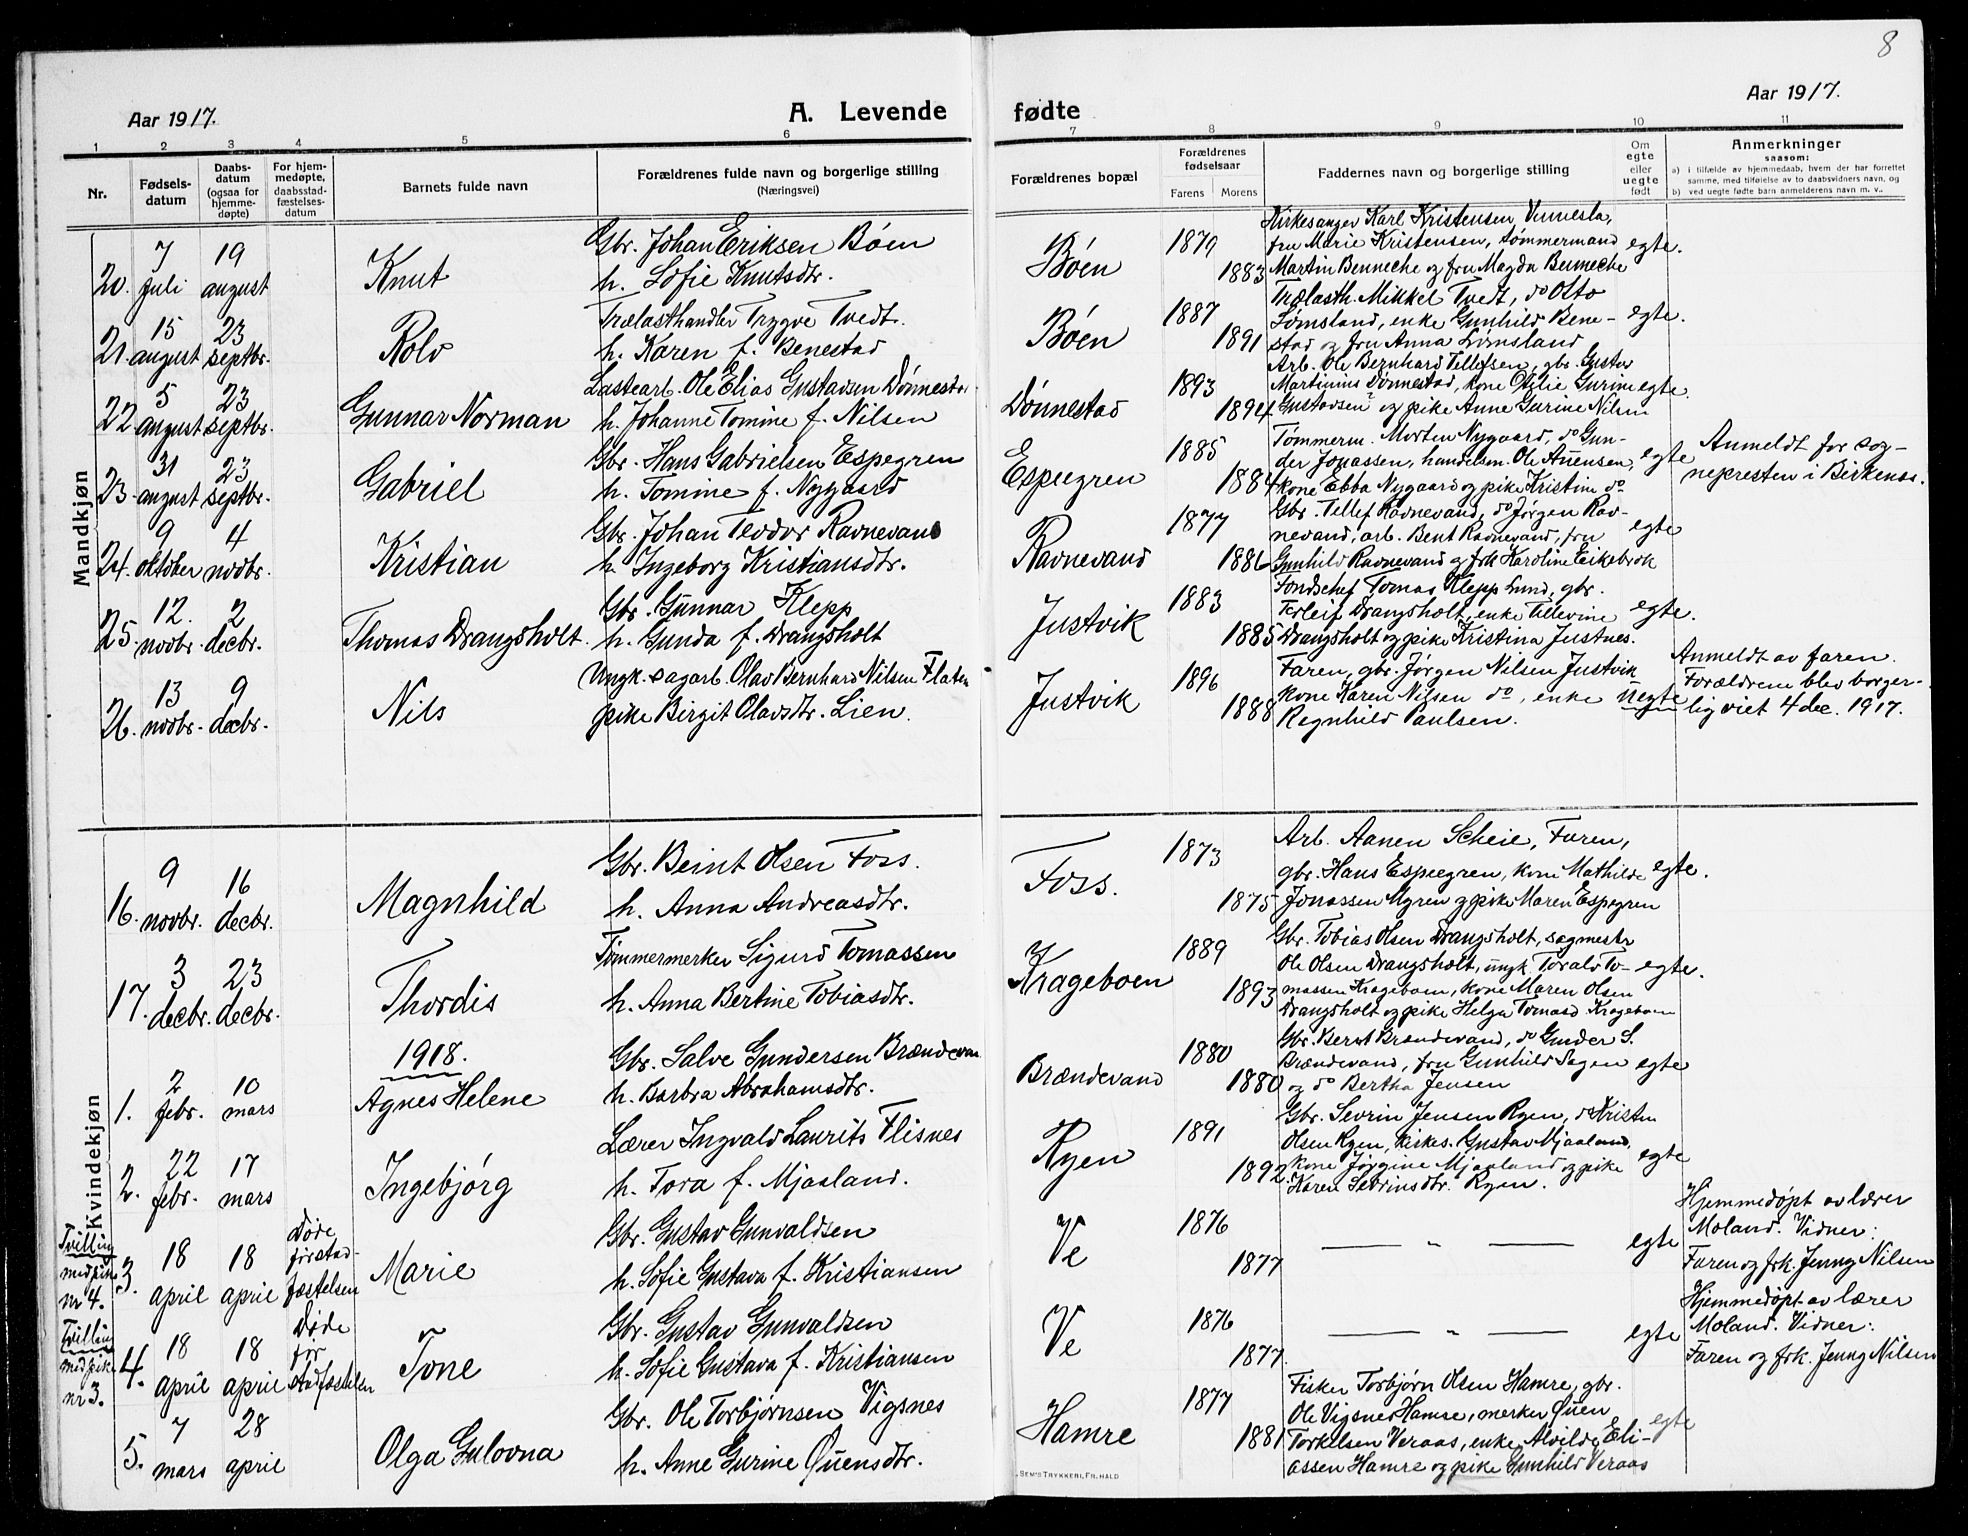 8
Aar 1917.
A. Levende
fødte
Aar 1917.
1 2 3 4 5 6 7 8 9 10 11
Nr.
Fødsels-
datum
Daabs-
datum
(ogsaa for
hjemme-
døpte)
For hjem-
medøpte,
daabsstad-
fæstelses-
datum
Barnets fulde navn
Forældrenes fulde navn og borgerlige stilling
(Næringsvei)
Forældrenes bopæl
Forældrenes
fødselsaar
Farens Morens
Faddernes navn og borgerlige stilling
Om
egte
eller
uegte
født
Anmerkninger
saasom:
a) i tilfælde av hjemmedaab, hvem der har forrettet
samme, med tilføielse av to daabsvidners navn, og
b) ved uegte fødte barn anmelderens navn m. v..
Mandkjøn
20. 7 juli 19 august
Knut
Gbr. Johan Eriksen Bøen
h. Sofie Knutsdtr.
Bøen
1879
1883
Kirkesanger Karl Kristensen Vennesla,
fru Marie Kristensen, tømmermand
Martin Benneche og fru Magda Benneche
egte.
21. 15 august 23 septbr.
Rolv
Trælasthandler Trygve Tvedt.
h. Karen f. Benestad
Bøen
1887
1891
Trælasth. Mikkel Tvedt, do Otto
Lømsland, enke Gunhild Bene-
stad og fru Anna Lømsland
egte.
22. 5 august 23 septbr.
Gunnar Norman
Lastearb. Ole Elias Gustavsen Dønnestad
h. Johanne Tomine f. Nilsen
Dønnestad
1893
1894
Arb. Ole Bernhard Tellefsen, gbr. Gustav
Martinius Dønnestad, kone Otilie Gurine
Gustavsen og pike Anne Gurine Nilsen
egte.
23. 31 august 23 septbr.
Gabriel
Gbr. Hans Gabrielsen Espegren
h. Tomine f. Nygaard
Espegren
1885
1884
Tømmerm. Morten Nygaard, do Gun-
der Jonassen, handelsm. Ole Auensen,
kone Ebba Nygaard og pike Kristine do
egte
Anmeldt for sog-
nepresten i Birkenes.
24. 9 oktober 4 novbr.
Kristian
Gbr. Johan Teodor Ravnevand
h. Ingeborg Kristiansdtr.
Ravnevand
1877
1886
Gbr. Tellef Ravnevand, do Jørgen Rav-
nevand, arb. Bent Ravnevand, fru
Gunhild Ravnevand og frk Karoline Eikebrok
egte
25. 12. novbr. 2 decbr.
Thomas Drangsholt.
Gbr. Gunnar Klepp
h. Gunda f. Drangsholt
Justvik
1883
1885
Fondschef Tomas Klepp Lund, gbr.
Terleif Drangsholt, enke Tellevine
Drangsholt og pike Kristina Justnes.
egte.
26. 13 novbr. 9 decbr.
Nils
Ungk. sagarb. Olav Bernhard Nilsen Flaten
pike Birgit Olavsdtr. Lien.
Justvik
1896
1888
Faren, gbr. Jørgen Nilsen Justvik
kone Karen Nilsen do, enke
Regnhild Paulsen.
uegte
Anmeldt av faren.
Forældrene blev borger-
lig viet 4 dec. 1917.
Kvindekjøn
16. 9 novbr. 16 decbr.
Magnhild
Gbr. Beint Olsen Foss.
h. Anna Andreasdtr.
Foss.
1873
1875
Arb. Aanen Scheie, Faren,
gbr. Hans Espegren, kone Mathilde
Jonassen Myren og pike Maren Espegren
egte.
17. 3 decbr. 23 decbr.
Thordis
Tømmermerker Sigurd Tomassen
h. Anna Bertine Tobiasdtr.
Krageboen
1889
1893
Gbr. Tobias Olsen Drangsholt, sagmester
Ole Olsen Drangsholt, ungk. Torals To-
massen Krageboen, kone Maren Olsen
Drangsholt og pike Helga Tomasd Krageboen
egte.
1918.
1. 2 febr. 10 mars
Agnes Helene
Gbr. Salve Gundersen Brændevan
h. Barbra Abrahamsdtr.
Brændevand
1880
1880
Gbr. Bernt Brændevand, do Gunder S.
Brændevand, fru Gunhild Sagen
og do Bertha Jensen
egte
2. 22 febr. 17 mars
Ingebjørg
Lærer Ingvald Laurits Flisnes
h. Tora f. Mjaaland.
Ryen
1891
1892
Gbr. Sevrin Jensen Ryen, do Kristen
Olsen Ryen, kirkes. Gustav Mjaaland,
kone Jørgine Mjaaland og pike
Karen Sevrinsdtr. Ryen.
egte
Tvilling
med pike
nr 4.
3. 18 april 18 april
Døde
før stad-
fæstelsen
Marie
Gbr. Gustav Gunvaldsen
h. Sofie Gustava f. Kristiansen
Ve
1876
1877
— " —
egte
Hjemmedøpt av lærer
Moland. Vidner:
Faren og frk. Jenny Nilsen
Tvilling
med pike
nr 3.
4. 18 april 18 april
Døde
før
stadfæstelsen
Tone
Gbr. Gustav Gunvaldsen
h. Sofie Gustava f. Kristiansen
Ve
1876
1877
— " —
egte
Hjemmedøpt av lærer
Moland. Vidner:
Faren og frk. Jenny Nilsen
5. 7 mars 28 april
Olga Gulovna
Gbr. Ole Torbjørnsen Vigsnes
h. Anne Gurine Øuensdtr.
Hamre
1877
1881
Fisker Torbjørn Olsen Hamre, gbr.
Ole Vigsnes Hamre, merker Øuen
Torkelsen Veraas, enke Alvilde Eli-
assen Hamre og pike Gunhild Veraas
egte
. SEM'S TRYKKERI, FR.HALD